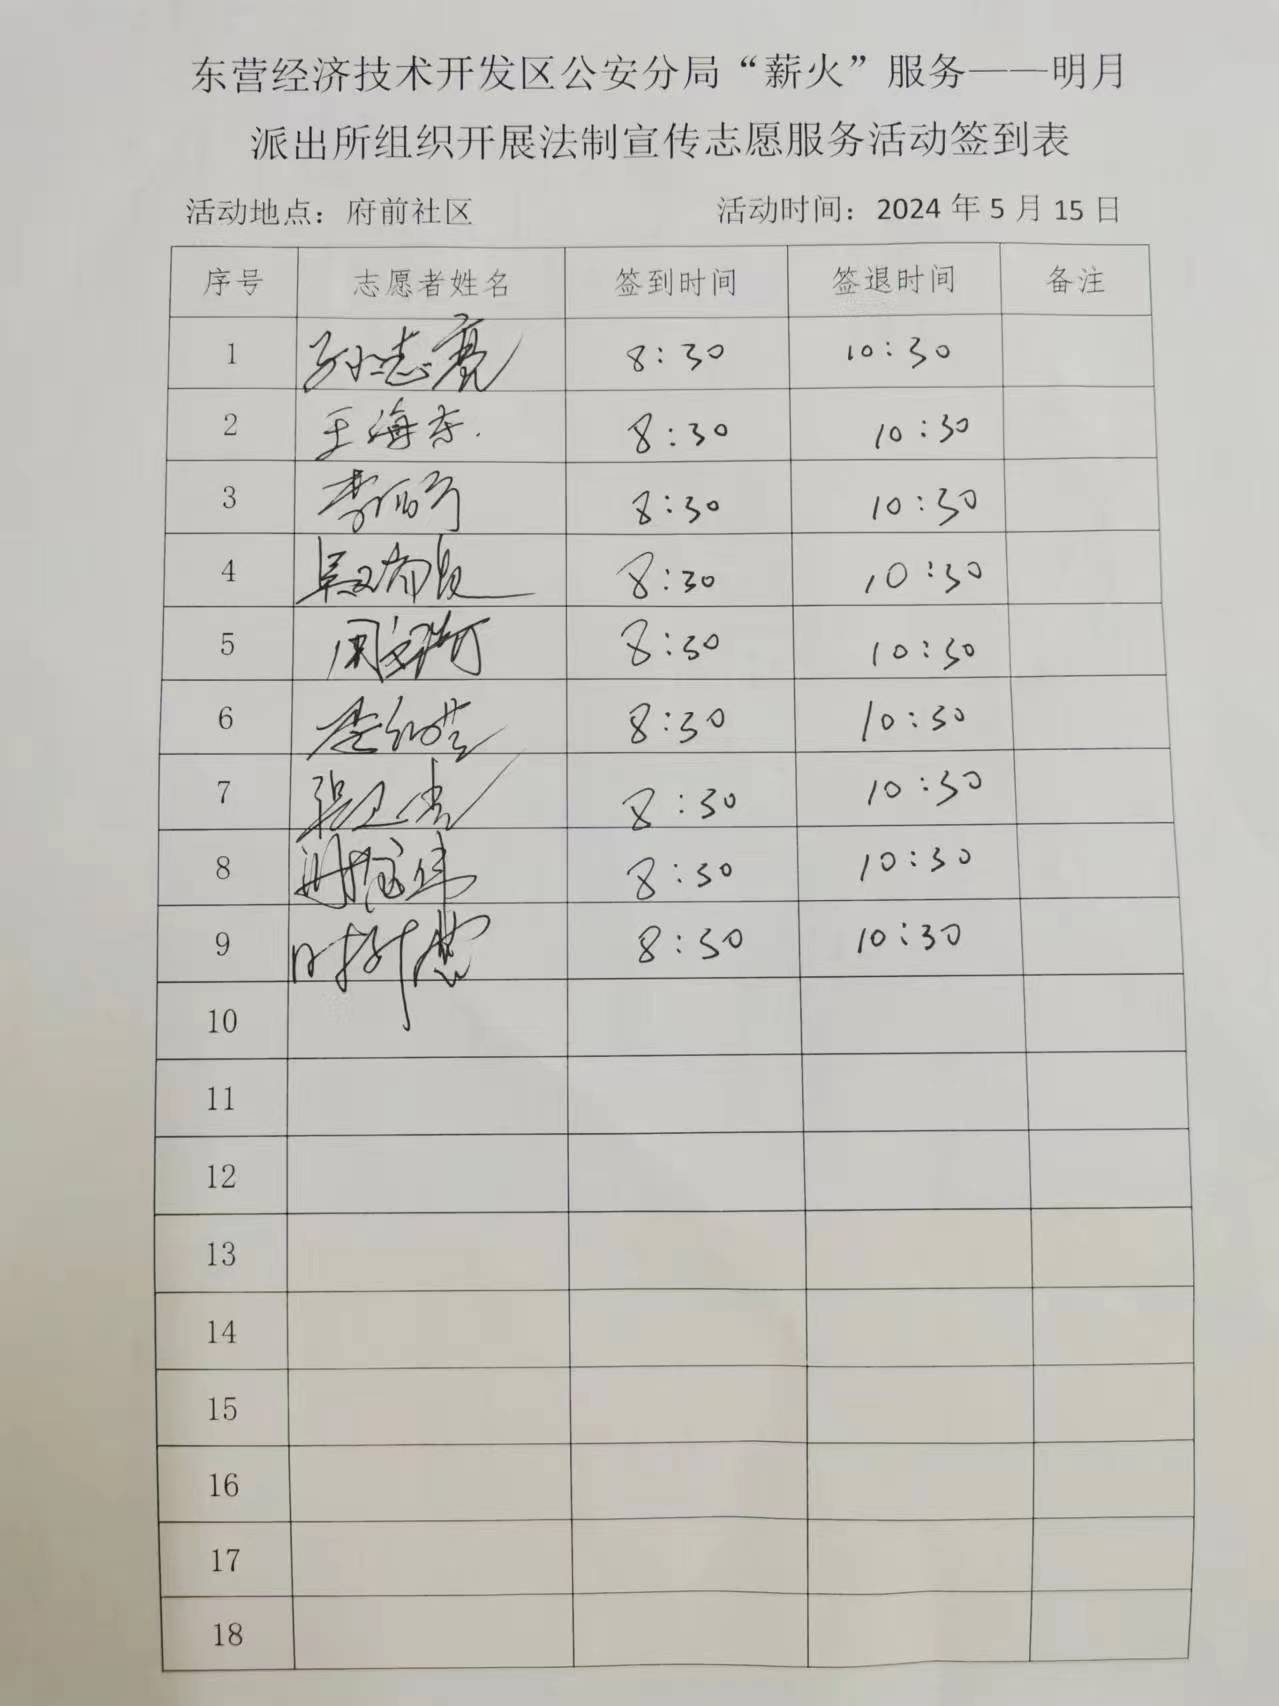 东营经济技术开发区公安分局“薪火”服务——明月
派出所组织开展法制宣传志愿服务活动签到表
活动地点：府前社区 活动时间：2024 年 5 月 15 日
序号 志愿者姓名 签到时间 签退时间 备注
1 孙志亮 8:30 10:30
2 王海东. 8:30 10:30
3 8:30 10:30
4 8:30 10:30
5 8:30 10:30
6 8:30 10:30
7 8:30 10:30
8 8:30 10:30
9 8:30 10:30
10
11
12
13
14
15
16
17
18